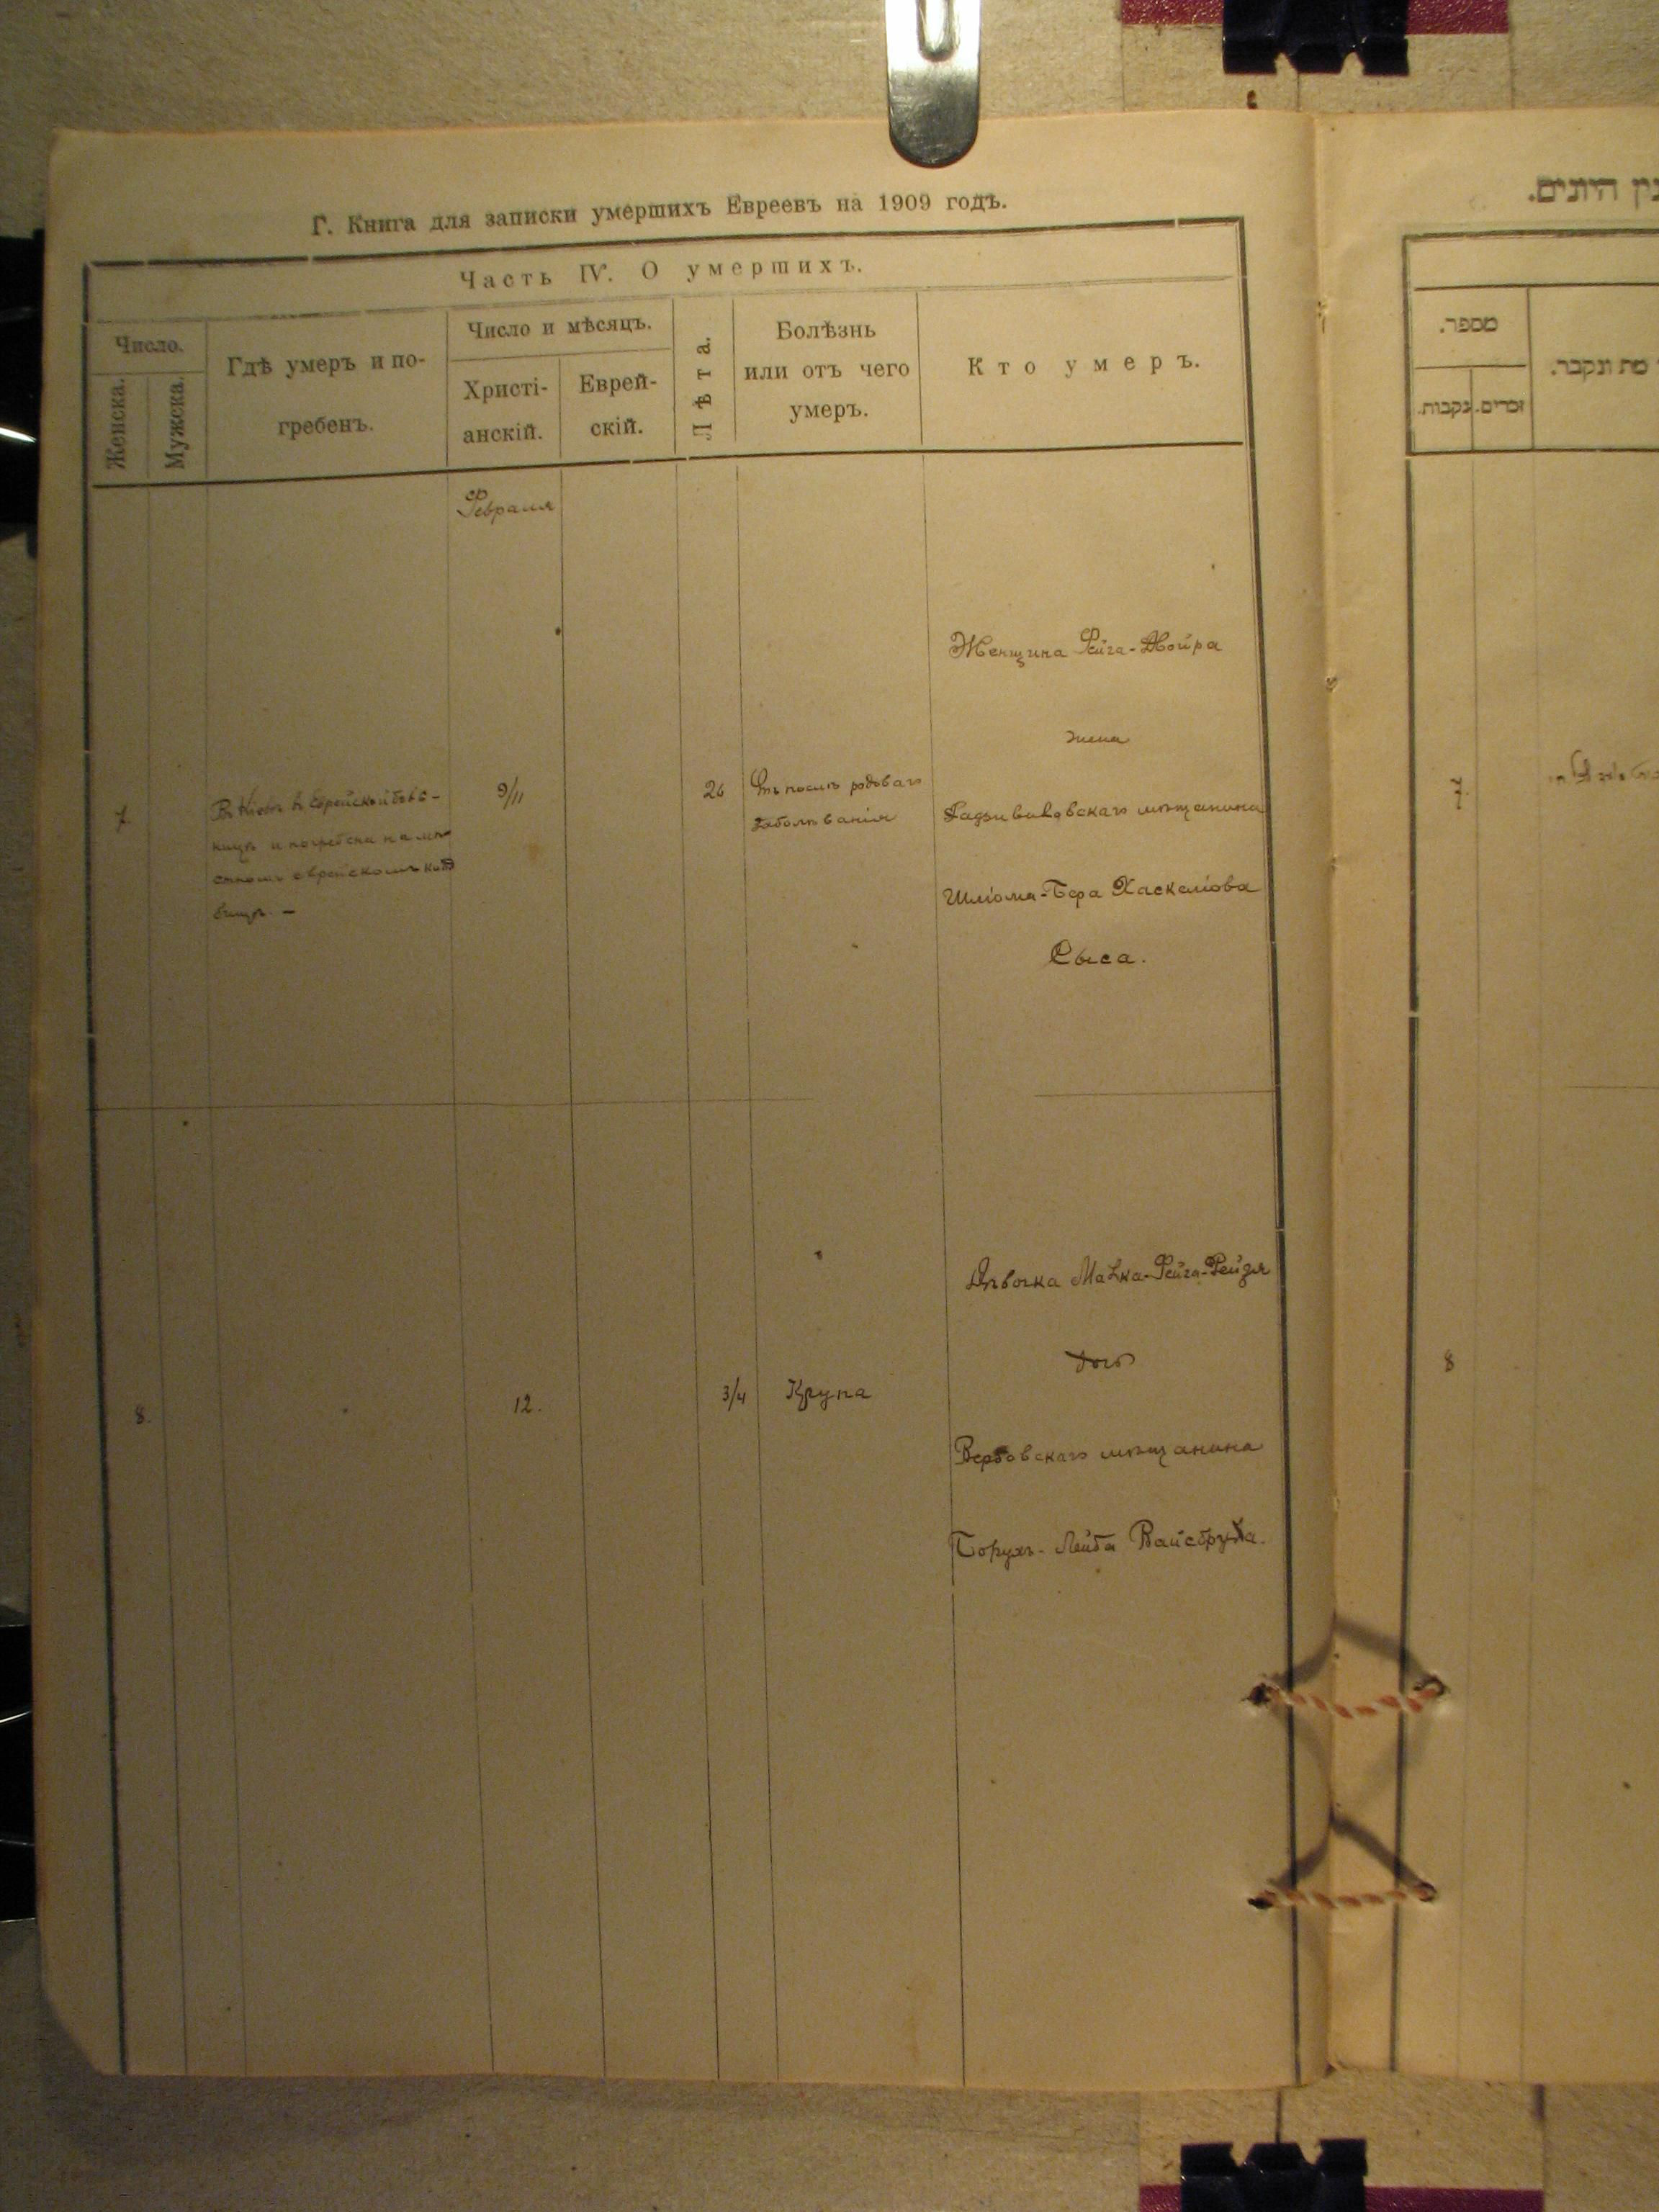 Г. Книга для записки умершихъ Евреевъ на 1909 годъ.
Часть IV. О умершихъ.
Число.
Женска.
Мужска.
Гдѣ умеръ и по-
гребенъ.
Число и мѣсяцъ.
Христі-
анскій.
Еврей-
скій.
Лѣта.
Болѣзнь
или отъ чего
умеръ.
Кто умеръ.
Февраля
7.
Въ Кіевѣ въ Еврейской боль-
ницѣ и погребена на мѣ
стномъ еврейскомъ клад
бищѣ. –
9/11
26
Отъ послѣ родоваго
заболѣванія
Женщина Фейга-Двойра
жена
Радзивиловскаго мѣщанина
Шліома-Бера Хаскеліова
Сыса.
8.
12.
3/4
Крупа
Дѣвочка Малка-Фейга-Рейзя
дочь
Вербовскаго мѣщанина
Борухъ-Лейба
מספר.
נקבות.
זכרים.
מת ונקבר.
7.
8